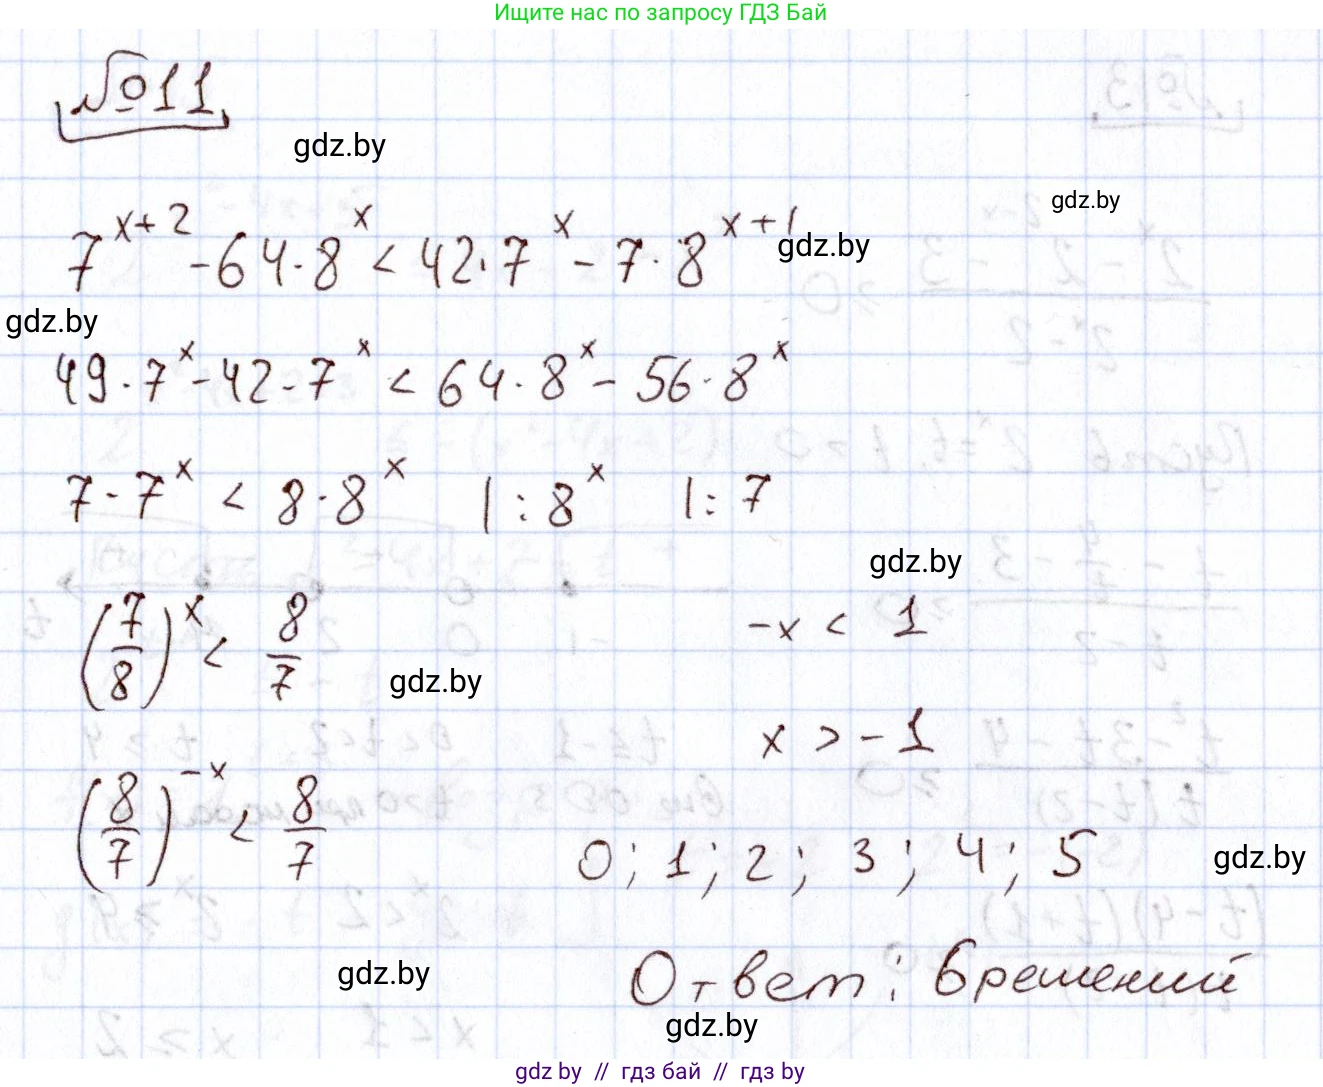 Ищите нас по запросу ГДЗ Бай
№11
gdz.by
gdz.by
7^{x+2} - 64·8^x < 42·7^x - 7·8^{x+1}
gdz.by
gdz.by
49·7^x - 42·7^x < 64·8^x - 56·8^x
7·7^x < 8·8^x |:8^x |:7
gdz.by
(7/8)^x < 8/7 -x < 1
gdz.by
x > -1
(8/7)^{-x} < 8/7
0; 1; 2; 3; 4; 5
gdz.by
gdz.by
Ответ: 6 решений
gdz.by
gdz by // гдз бай // гдз by